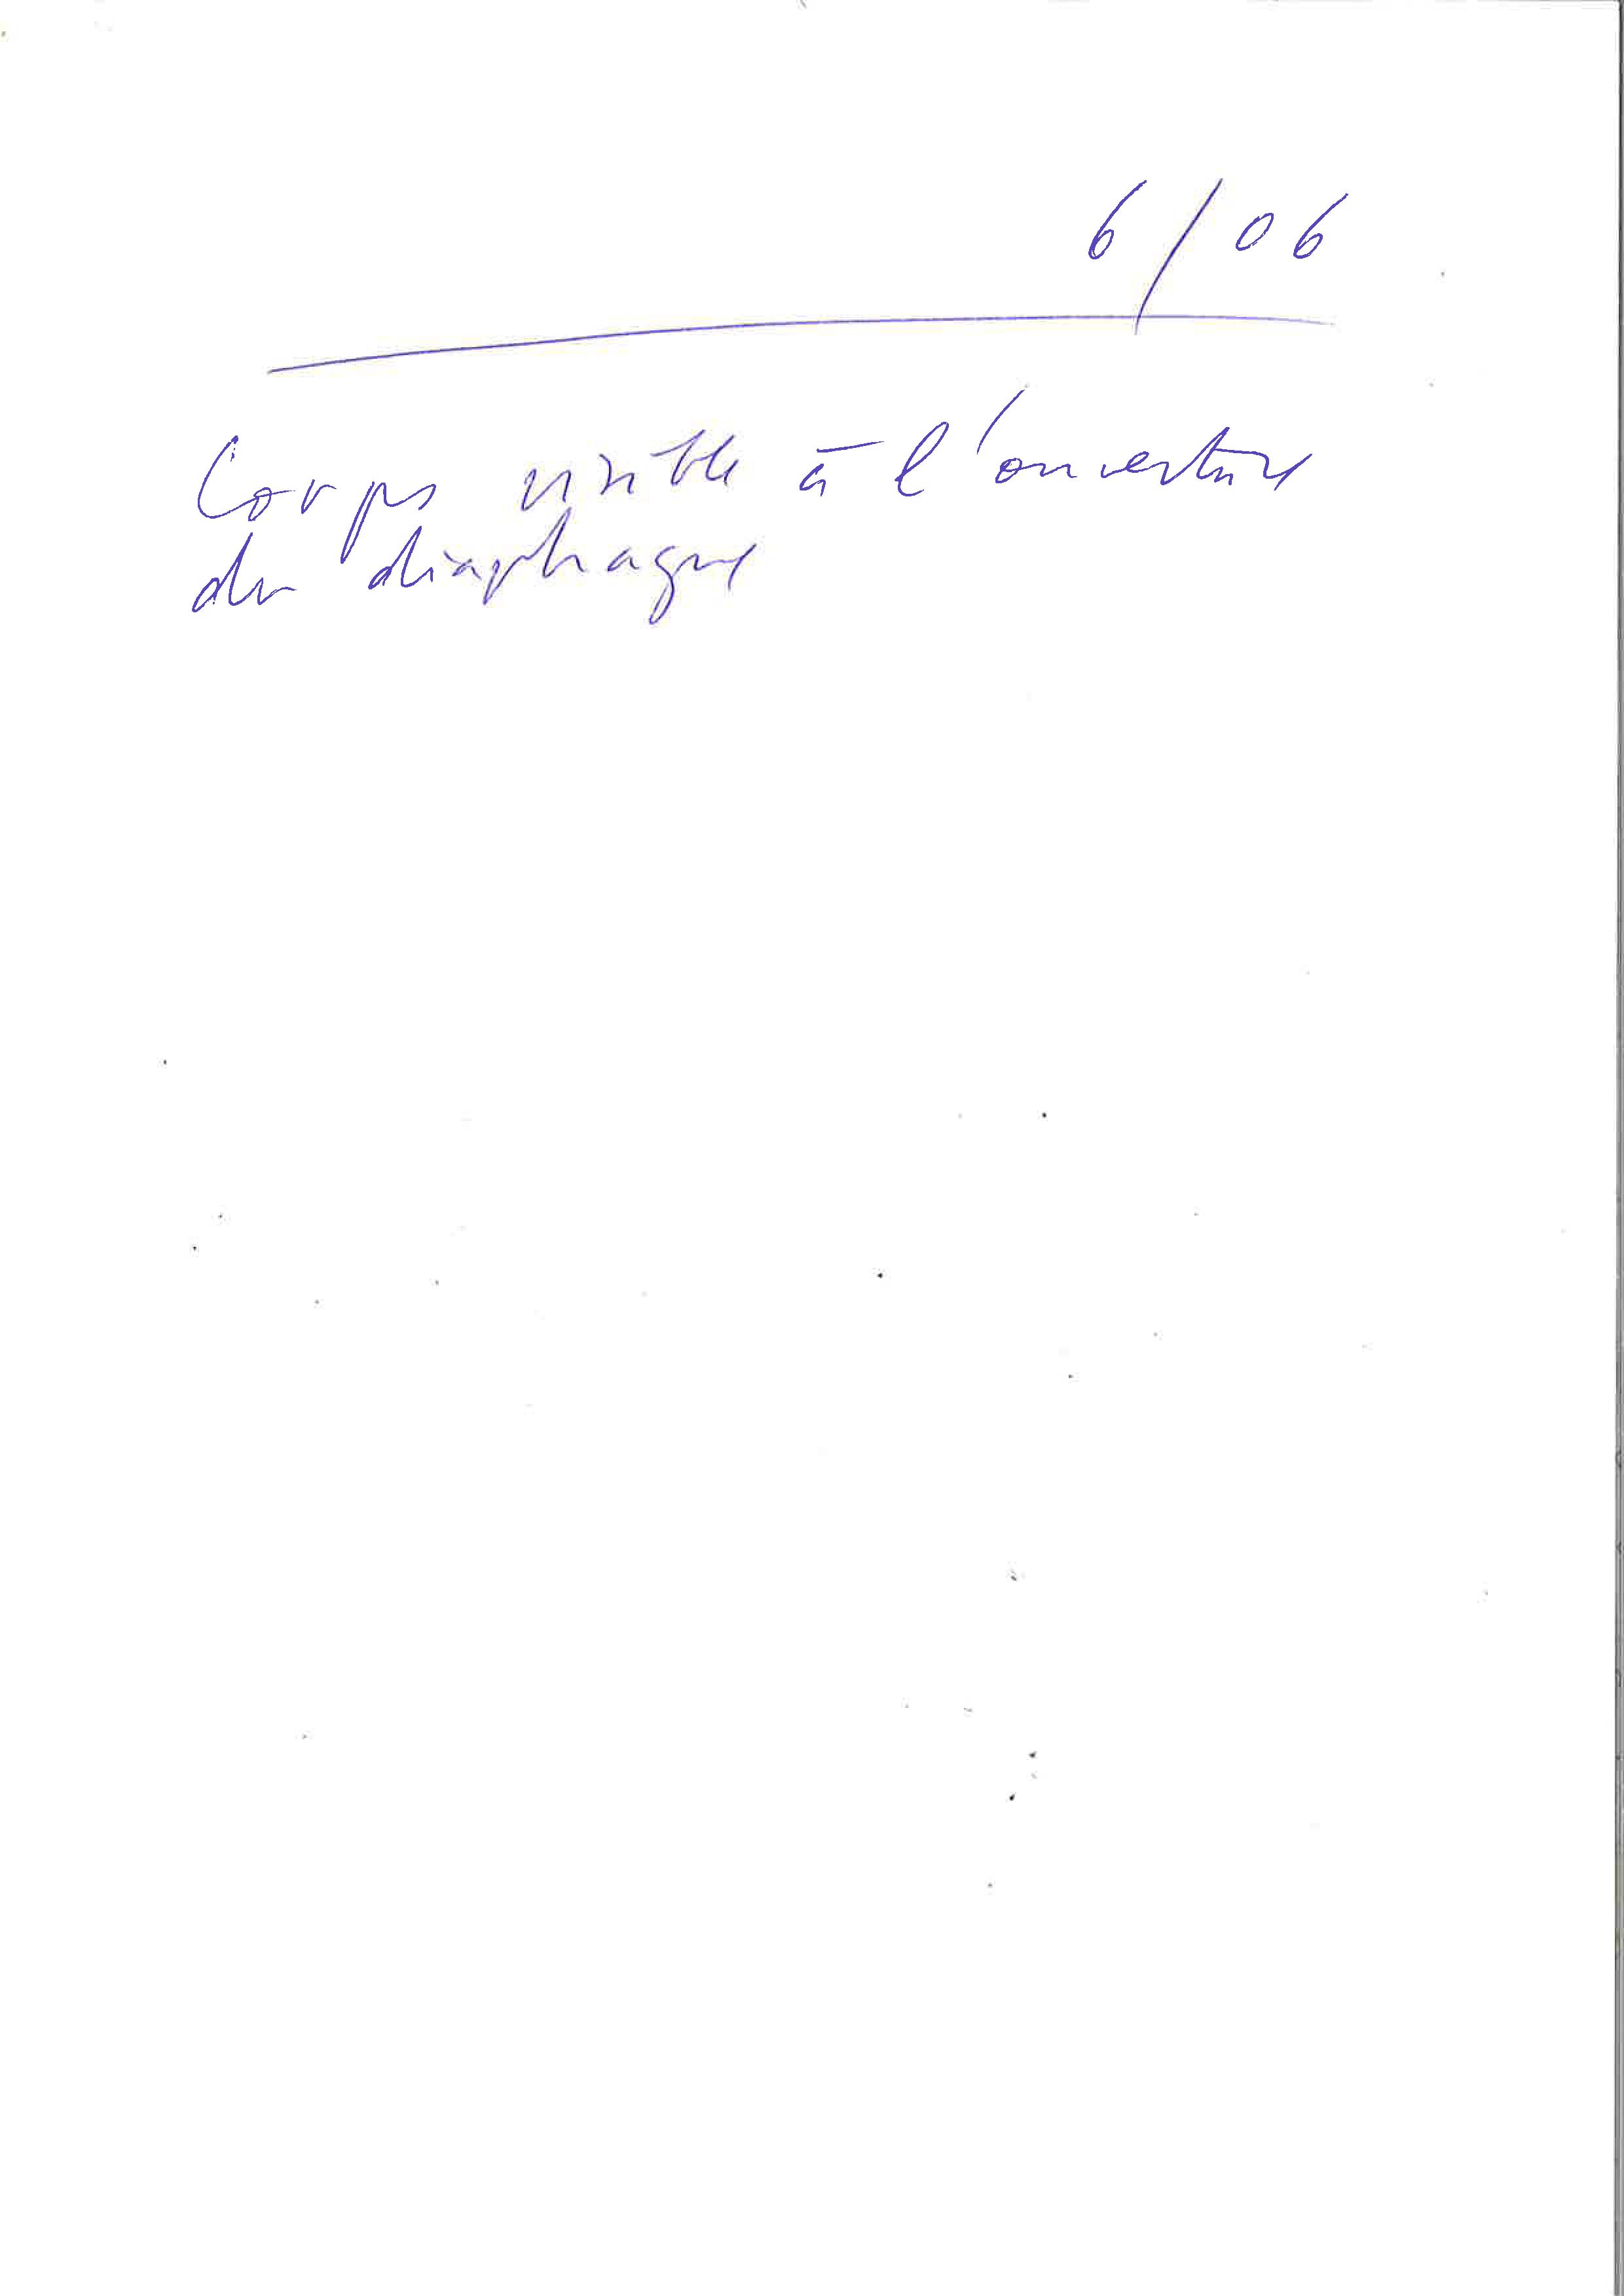 6/06
Corps visible à l'ouverture
du diaphragme